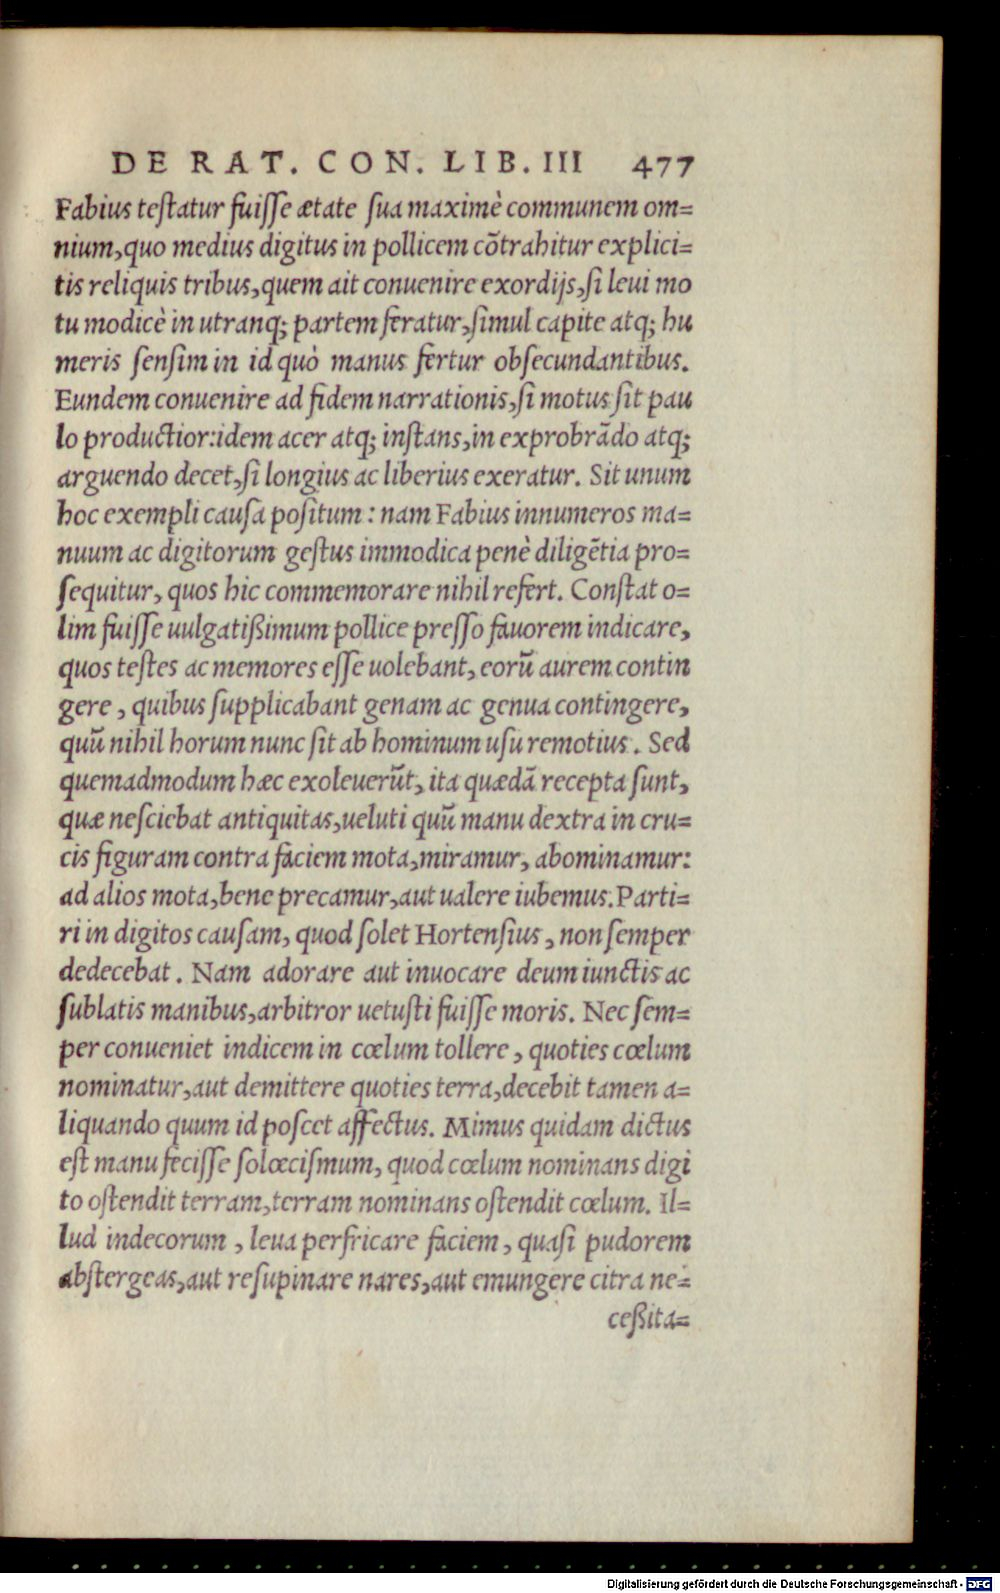 DE RAT. CON. LIB. III 477
Fabius testatur fuisse ætate sua maximè communem om=
nium, quo medius digitus in pollicem cõtrahitur explici=
tis reliquis tribus, quem ait conuenire exordijs, si leui mo
tu modicè in utranq; partem feratur, simul capite atq; hu
meris sensim in id quò manus fertur obsecundantibus.
Eundem conuenire ad fidem narrationis, si motus sit pau
lo productior: idem acer atq; instans, in exprobrãdo atq;
arguendo decet, si longius ac liberius exeratur. Sit unum
hoc exempli causa positum : nam Fabius innumeros ma=
nuum ac digitorum gestus immodica penè diligẽtia pro=
sequitur, quos hic commemorare nihil refert. Constat o=
lim fuisse uulgatißimum pollice presso fauorem indicare,
quos testes ac memores esse uolebant, eorũ aurem contin
gere, quibus supplicabant genam ac genua contingere,
quũ nihil horum nunc sit ab hominum usu remotius. Sed
quemadmodum hæc exoleuerũt, ita quædã recepta sunt,
quæ nesciebat antiquitas, ueluti quũ manu dextra in cru=
cis figuram contra faciem mota, miramur, abominamur:
ad alios mota, bene precamur, aut ualere iubemus. Parti=
ri in digitos causam, quod solet Hortensius, non semper
dedecebat. Nam adorare aut inuocare deum iunctis ac
sublatis manibus, arbitror uetusti fuisse moris. Nec sem=
per conueniet indicem in cœlum tollere, quoties cœlum
nominatur, aut demittere quoties terra, decebit tamen a=
liquando quum id poscet affectus. Mimus quidam dictus
est manu fecisse solœcismum, quod cœlum nominans digi
to ostendit terram, terram nominans ostendit cœlum. Il=
lud indecorum, leua perfricare faciem, quasi pudorem
abstergeas, aut resupinare nares, aut emungere citra ne=
ceßita=
Digitalisierung gefördert durch die Deutsche Forschungsgemeinschaft - DFG